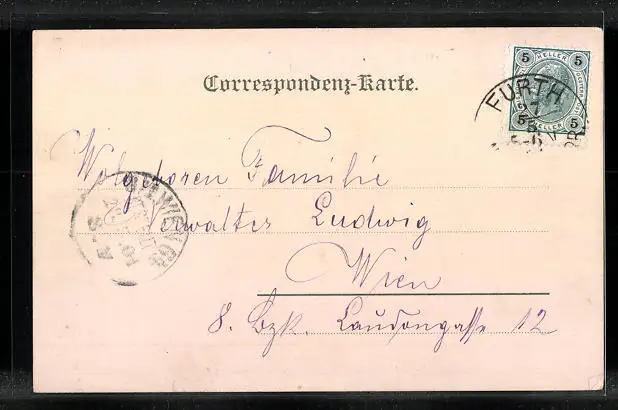 Correspondenz-Karte.
5 HELLER 5
5 HELLER 5
FURTH
27
Wolgeboren Familie
Verwalter Ludwig
Wien
8. Bzk. Laudongasse 12
WIEN